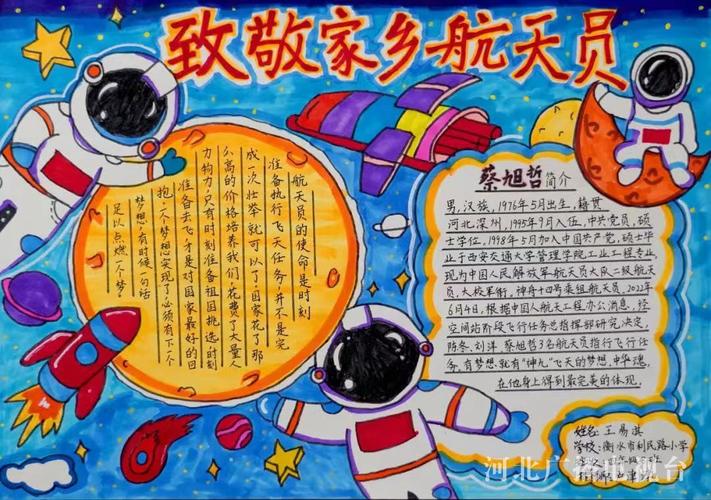 致敬家乡航天员
航天员的使命是时刻
准备执行飞天任务,并不是完
成一次壮举就可以了,国家花了那
么高的价格培养我们,花费了大量人
力物力,只有时刻准备祖国挑选,时刻
准备去飞,才是对国家最好的回
抱,一个梦想实现了,必须有下一个
梦想,有时候一句话
足以点燃一个梦
蔡旭哲简介
男,汉族,1976年5月出生,籍贯
河北深州,1995年9月入伍,中共党员,硕
士学位,1998年5月加入中国共产党,硕士毕
于西安交通大学管理学院工业工程专业
现为中国人民解放军航天员大队二级航天
员,大校军衔,神舟十四号乘组航天员,2022年
6月4日,根据中国人航天工程办公消息,经
空间站阶段飞行任务总指挥部研究决定,
陈冬、刘洋 蔡旭哲3名航天员指行飞行任
务,有梦想,就有"神九"飞天的梦想,中华魂,
在他身上得到最完美的体现,
姓名:王易淇
学校:衡水市利民路小学
河北广播电视台